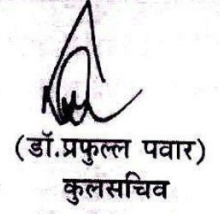 (डॉ.प्रफुल्ल पवार)
कुलसचिव